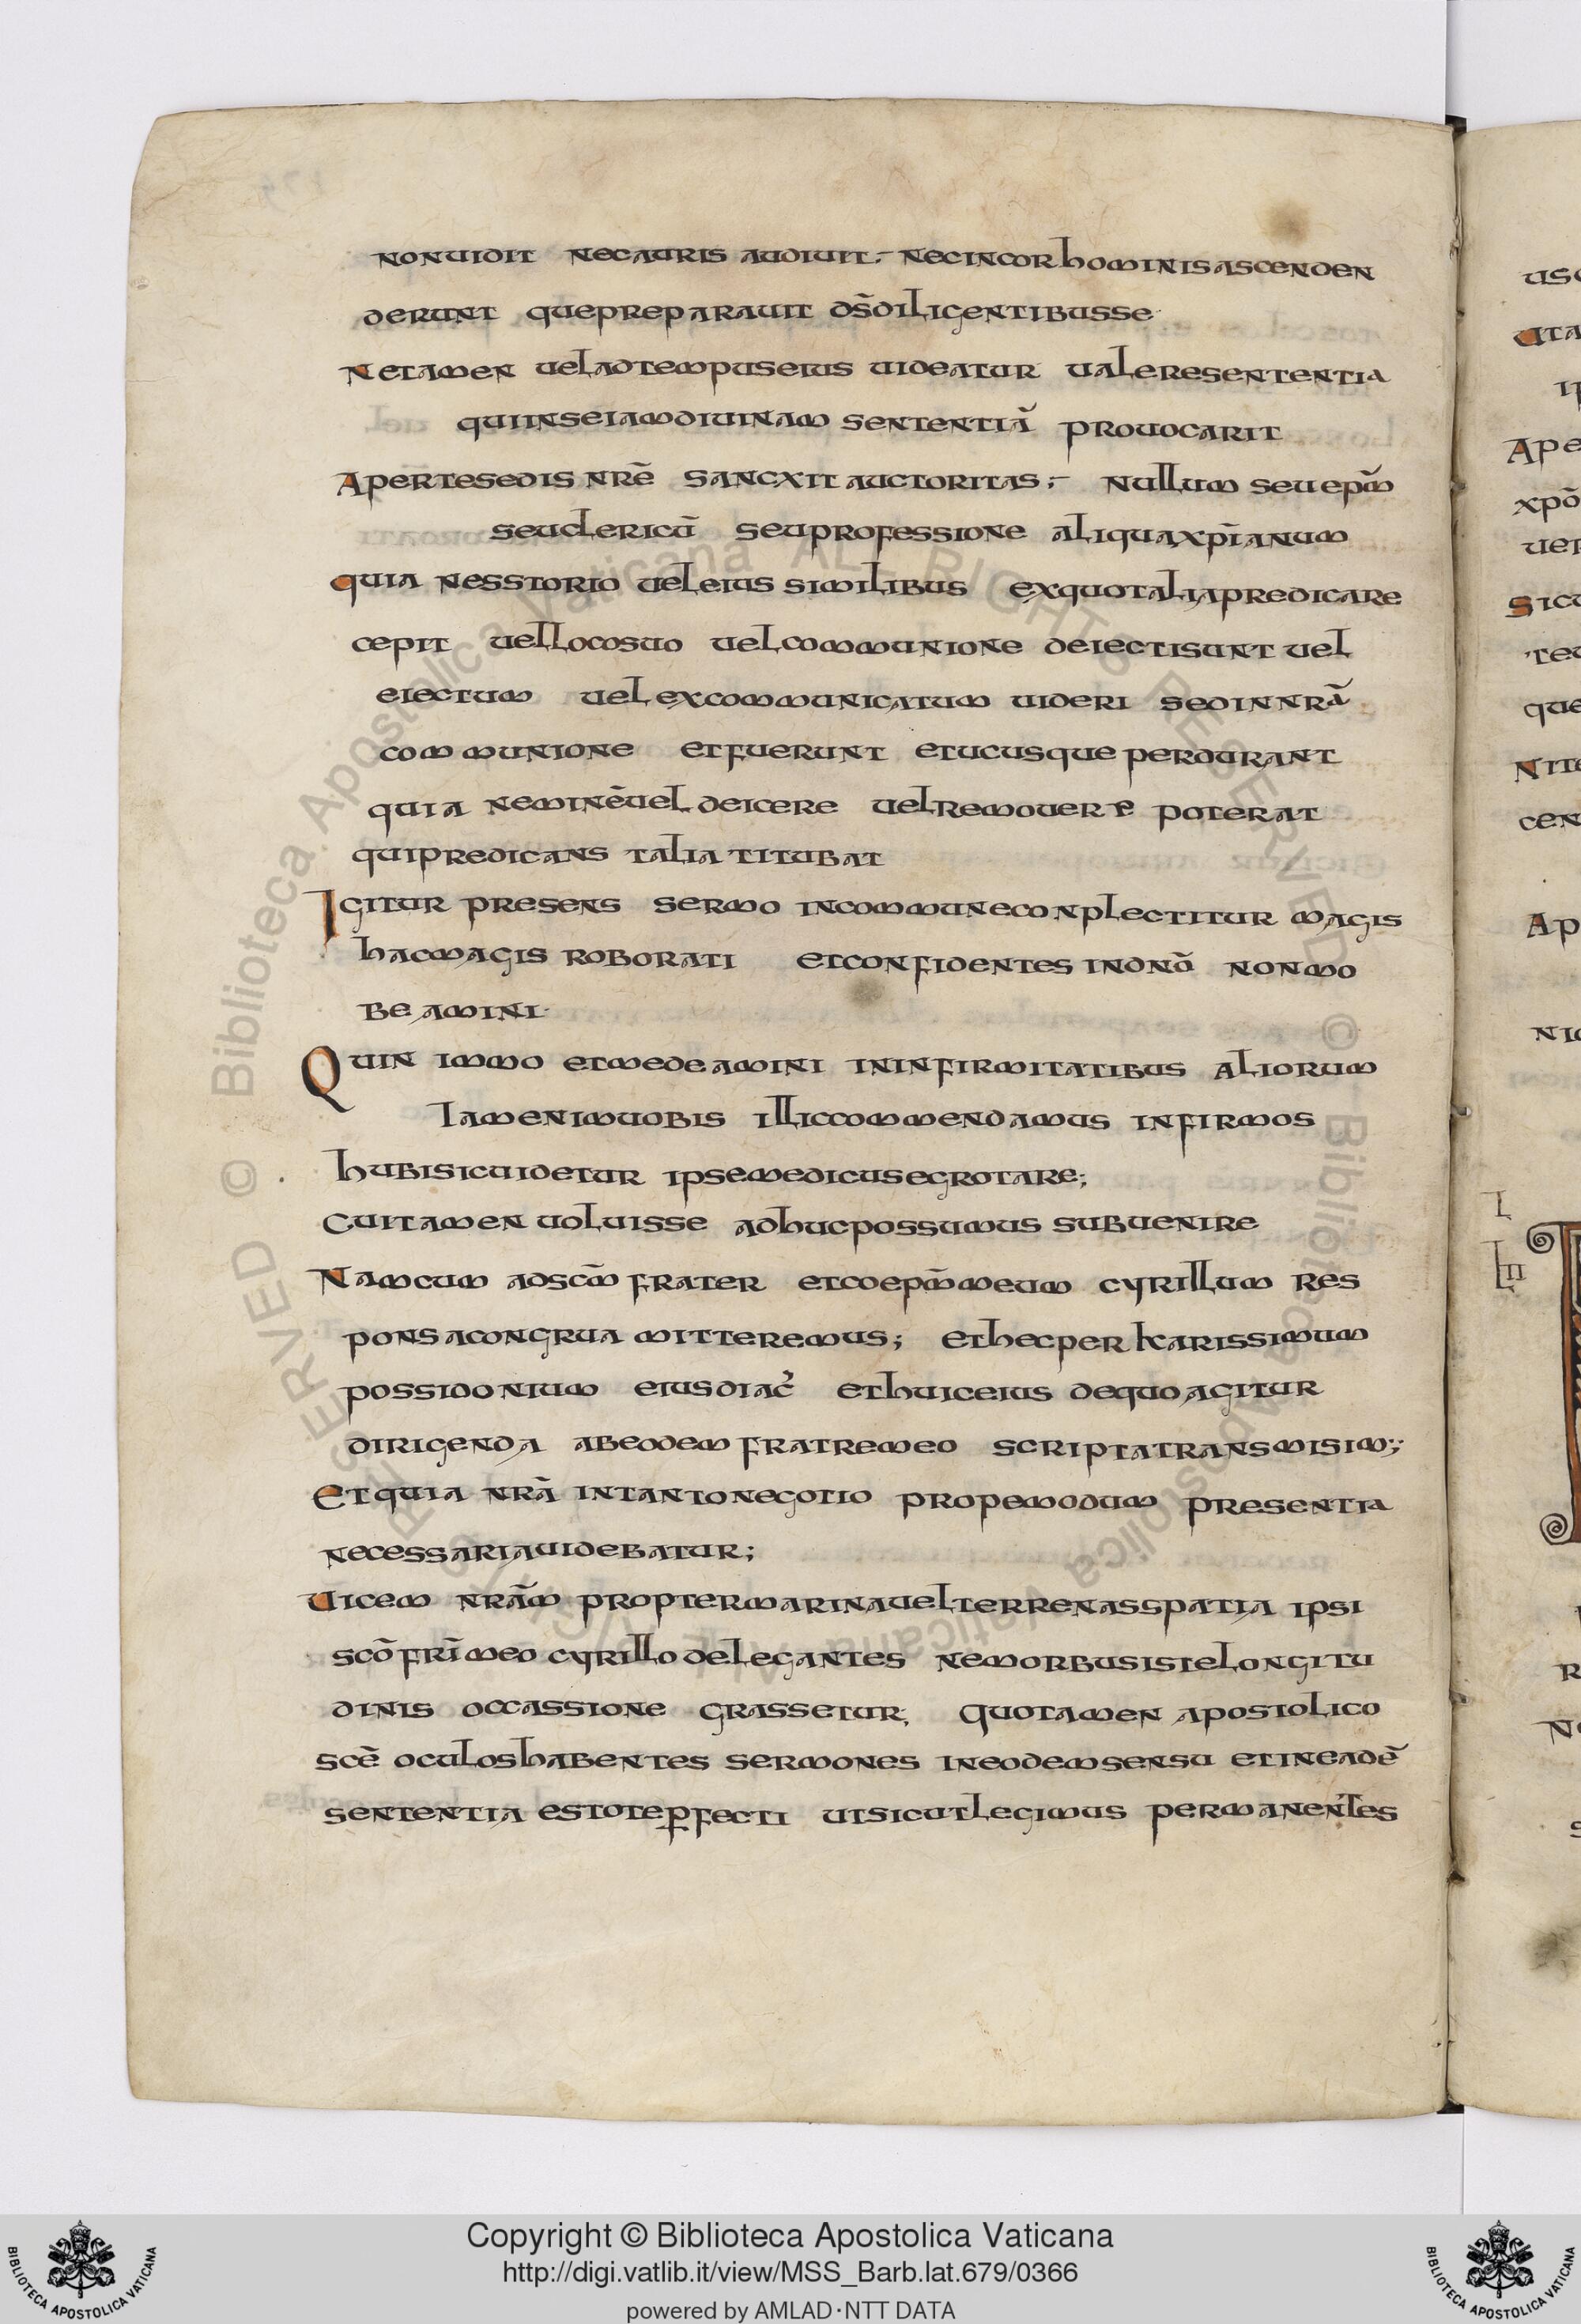 nonuidit necauris audiuit.- necincorhominisascenden
derunt quepreparauit dsdiligentibusse.
Netamen ueladtempuseius uideatur ualeresententia
quiinseiamdiuinam sententiā prouocarit
Apertesedis nrē sancxit auctoritas;- Nullum seu epm̄
seuclericū seuprofessione aliquaxp̄ianum
quia nesstorio ueleius similibus exquotaliapredicare
cepit uellocosuo uelcommunione deiectisunt uel
eiectum uel excommunicatum uideri sedinnrā
communione etfuerunt etucusque perdurant
quia neminēuel deicere uelremouere poterat
quipredicans talia titubat
Igitur presens sermo incommuneconplectitur magis
hacmagis roborati etconfidentes indnō nonmo
beamini.
Quin immo etmedeamini ininfirmitatibus aliorum
Tamenimuobis illiccommendamus infirmos
hubisicuidetur ipsemedicusegrotare;
Cuitamen uoluisse adhucpossumus subuenire
Namcum adscm̄ frater etcoepm̄meum cyrillum res
ponsacongrua mitteremus; ethecper karissimum
possidonium eiusdiac̄ ethuiceius dequoagitur
dirigenda abeodem fratremeo scriptatransmisim;
Etquia nrā intantonegotio propemodum presentia
necessariauidebatur;
Uicem nrām proptermarinauelterrenasspatia ipsi
scōfrīmeo cyrillo delegantes nemorbusistelongitu
dinis occassione grassetur. quotamen apostolico
scē oculoshabentes sermones ineodemsensu etineadē
sententia estoteꝑfecti utsicutlegimus permanentes
usc
Ape
xpō
uer
sicu
que
Nite
cen
Ap
L
LII
Biblioteca Apostolica Vaticana ALL RIGHTS RESERVED ©
Copyright © Biblioteca Apostolica Vaticana
http://digi.vatlib.it/view/MSS_Barb.lat.679/0366
powered by AMLAD·NTT DATA
BIBLIOTECA APOSTOLICA VATICANA
BIBLIOTECA APOSTOLICA VATICANA